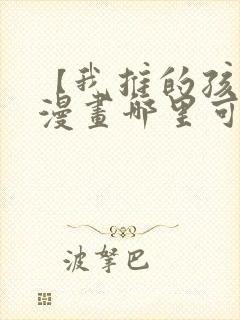 【我推的孩
漫畫哪里可
波拏巴